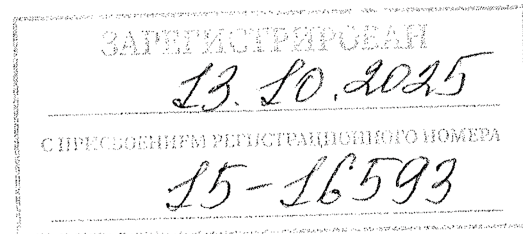 ЗАРЕГИСТРИРОВАН
13.10.2025
С ПРИСВОЕНИЕМ РЕГИСТРАЦИОННОГО НОМЕРА
15-16593